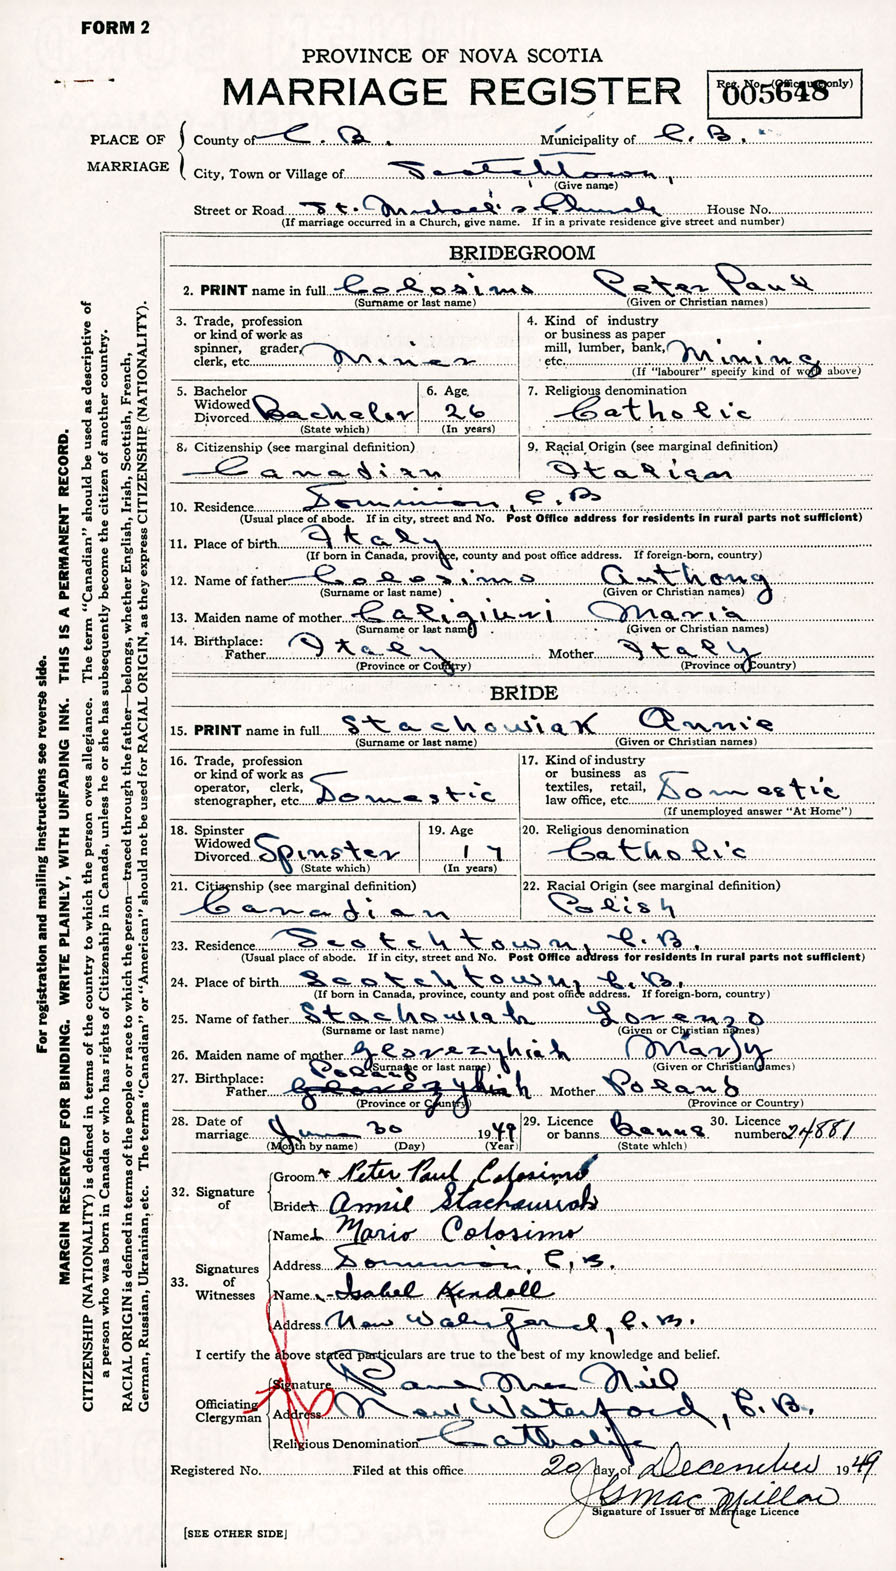 FORM 2
PROVINCE OF NOVA SCOTIA
MARRIAGE REGISTER
Reg. No. (Office use only)
005648
PLACE OF MARRIAGE
County of C. B. Municipality of C. B.
City, Town or Village of Scotchtown,
(Give name)
Street or Road St. Michael's Church House No.
(If marriage occurred in a Church, give name. If in a private residence give street and number)
BRIDEGROOM
2. PRINT name in full Colosimo Peter Paul
(Surname or last name) (Given or Christian names)
3. Trade, profession or kind of work as spinner, grader, clerk, etc. Miner
4. Kind of industry or business as paper mill, lumber, bank, etc. Mining
(If "labourer" specify kind of work above)
5. Bachelor Widowed Divorced Bachelor
(State which)
6. Age 26
(In years)
7. Religious denomination
Catholic
8. Citizenship (see marginal definition)
Canadian
9. Racial Origin (see marginal definition)
Italian
10. Residence Dominion, C.B
(Usual place of abode. If in city, street and No. Post Office address for residents in rural parts not sufficient)
11. Place of birth Italy
(If born in Canada, province, county and post office address. If foreign-born, country)
12. Name of father Colosimo Anthony
(Surname or last name) (Given or Christian names)
13. Maiden name of mother Caligiuri Maria
(Surname or last name) (Given or Christian names)
14. Birthplace:
Father Italy Mother Italy
(Province or Country) (Province or Country)
BRIDE
15. PRINT name in full Stachowiak Annie
(Surname or last name) (Given or Christian names)
16. Trade, profession or kind of work as operator, clerk, stenographer, etc. Domestic
17. Kind of industry or business as textiles, retail, law office, etc. Domestic
(If unemployed answer "At Home")
18. Spinster Widowed Divorced Spinster
(State which)
19. Age 17
(In years)
20. Religious denomination
Catholic
21. Citizenship (see marginal definition)
Canadian
22. Racial Origin (see marginal definition)
Polish
23. Residence Scotchtown, C.B.
(Usual place of abode. If in city, street and No. Post Office address for residents in rural parts not sufficient)
24. Place of birth Scotchtown, C.B.
(If born in Canada, province, county and post office address. If foreign-born, country)
25. Name of father Stachowiak Lorenzo
(Surname or last name) (Given or Christian names)
26. Maiden name of mother Mary
(Surname or last name) (Given or Christian names)
27. Birthplace: Poland
Father Mother Poland
(Province or Country) (Province or Country)
28. Date of marriage June 30 1949
(Month by name) (Day) (Year)
29. Licence or banns Banns
(State which)
30. Licence number 24881
32. Signature of
Groom Peter Paul Colosimo
Bride Annie Stachowiak
33. Signatures of Witnesses
Name Mario Colosimo
Address Dominion, C.B.
Name Isabel Kendall
Address New Waterford, C.B.
I certify the above stated particulars are true to the best of my knowledge and belief.
Officiating Clergyman
Signature Mac Neil
Address New Waterford, C.B.
Religious Denomination Catholic
Registered No. Filed at this office 20 day of December 1949
Signature of Issuer of Marriage Licence
[SEE OTHER SIDE]
For registration and mailing instructions see reverse side.
MARGIN RESERVED FOR BINDING. WRITE PLAINLY, WITH UNFADING INK. THIS IS A PERMANENT RECORD.
CITIZENSHIP (NATIONALITY) is defined in terms of the country to which the person owes allegiance. The term "Canadian" should be used as descriptive of
a person who was born in Canada or who has rights of Citizenship in Canada, unless he or she has subsequently become the citizen of another country.
RACIAL ORIGIN is defined in terms of the people or race to which the person—traced through the father—belongs, whether English, Irish, Scottish, French,
German, Russian, Ukrainian, etc. The terms "Canadian" or "American" should not be used for RACIAL ORIGIN, as they express CITIZENSHIP (NATIONALITY).